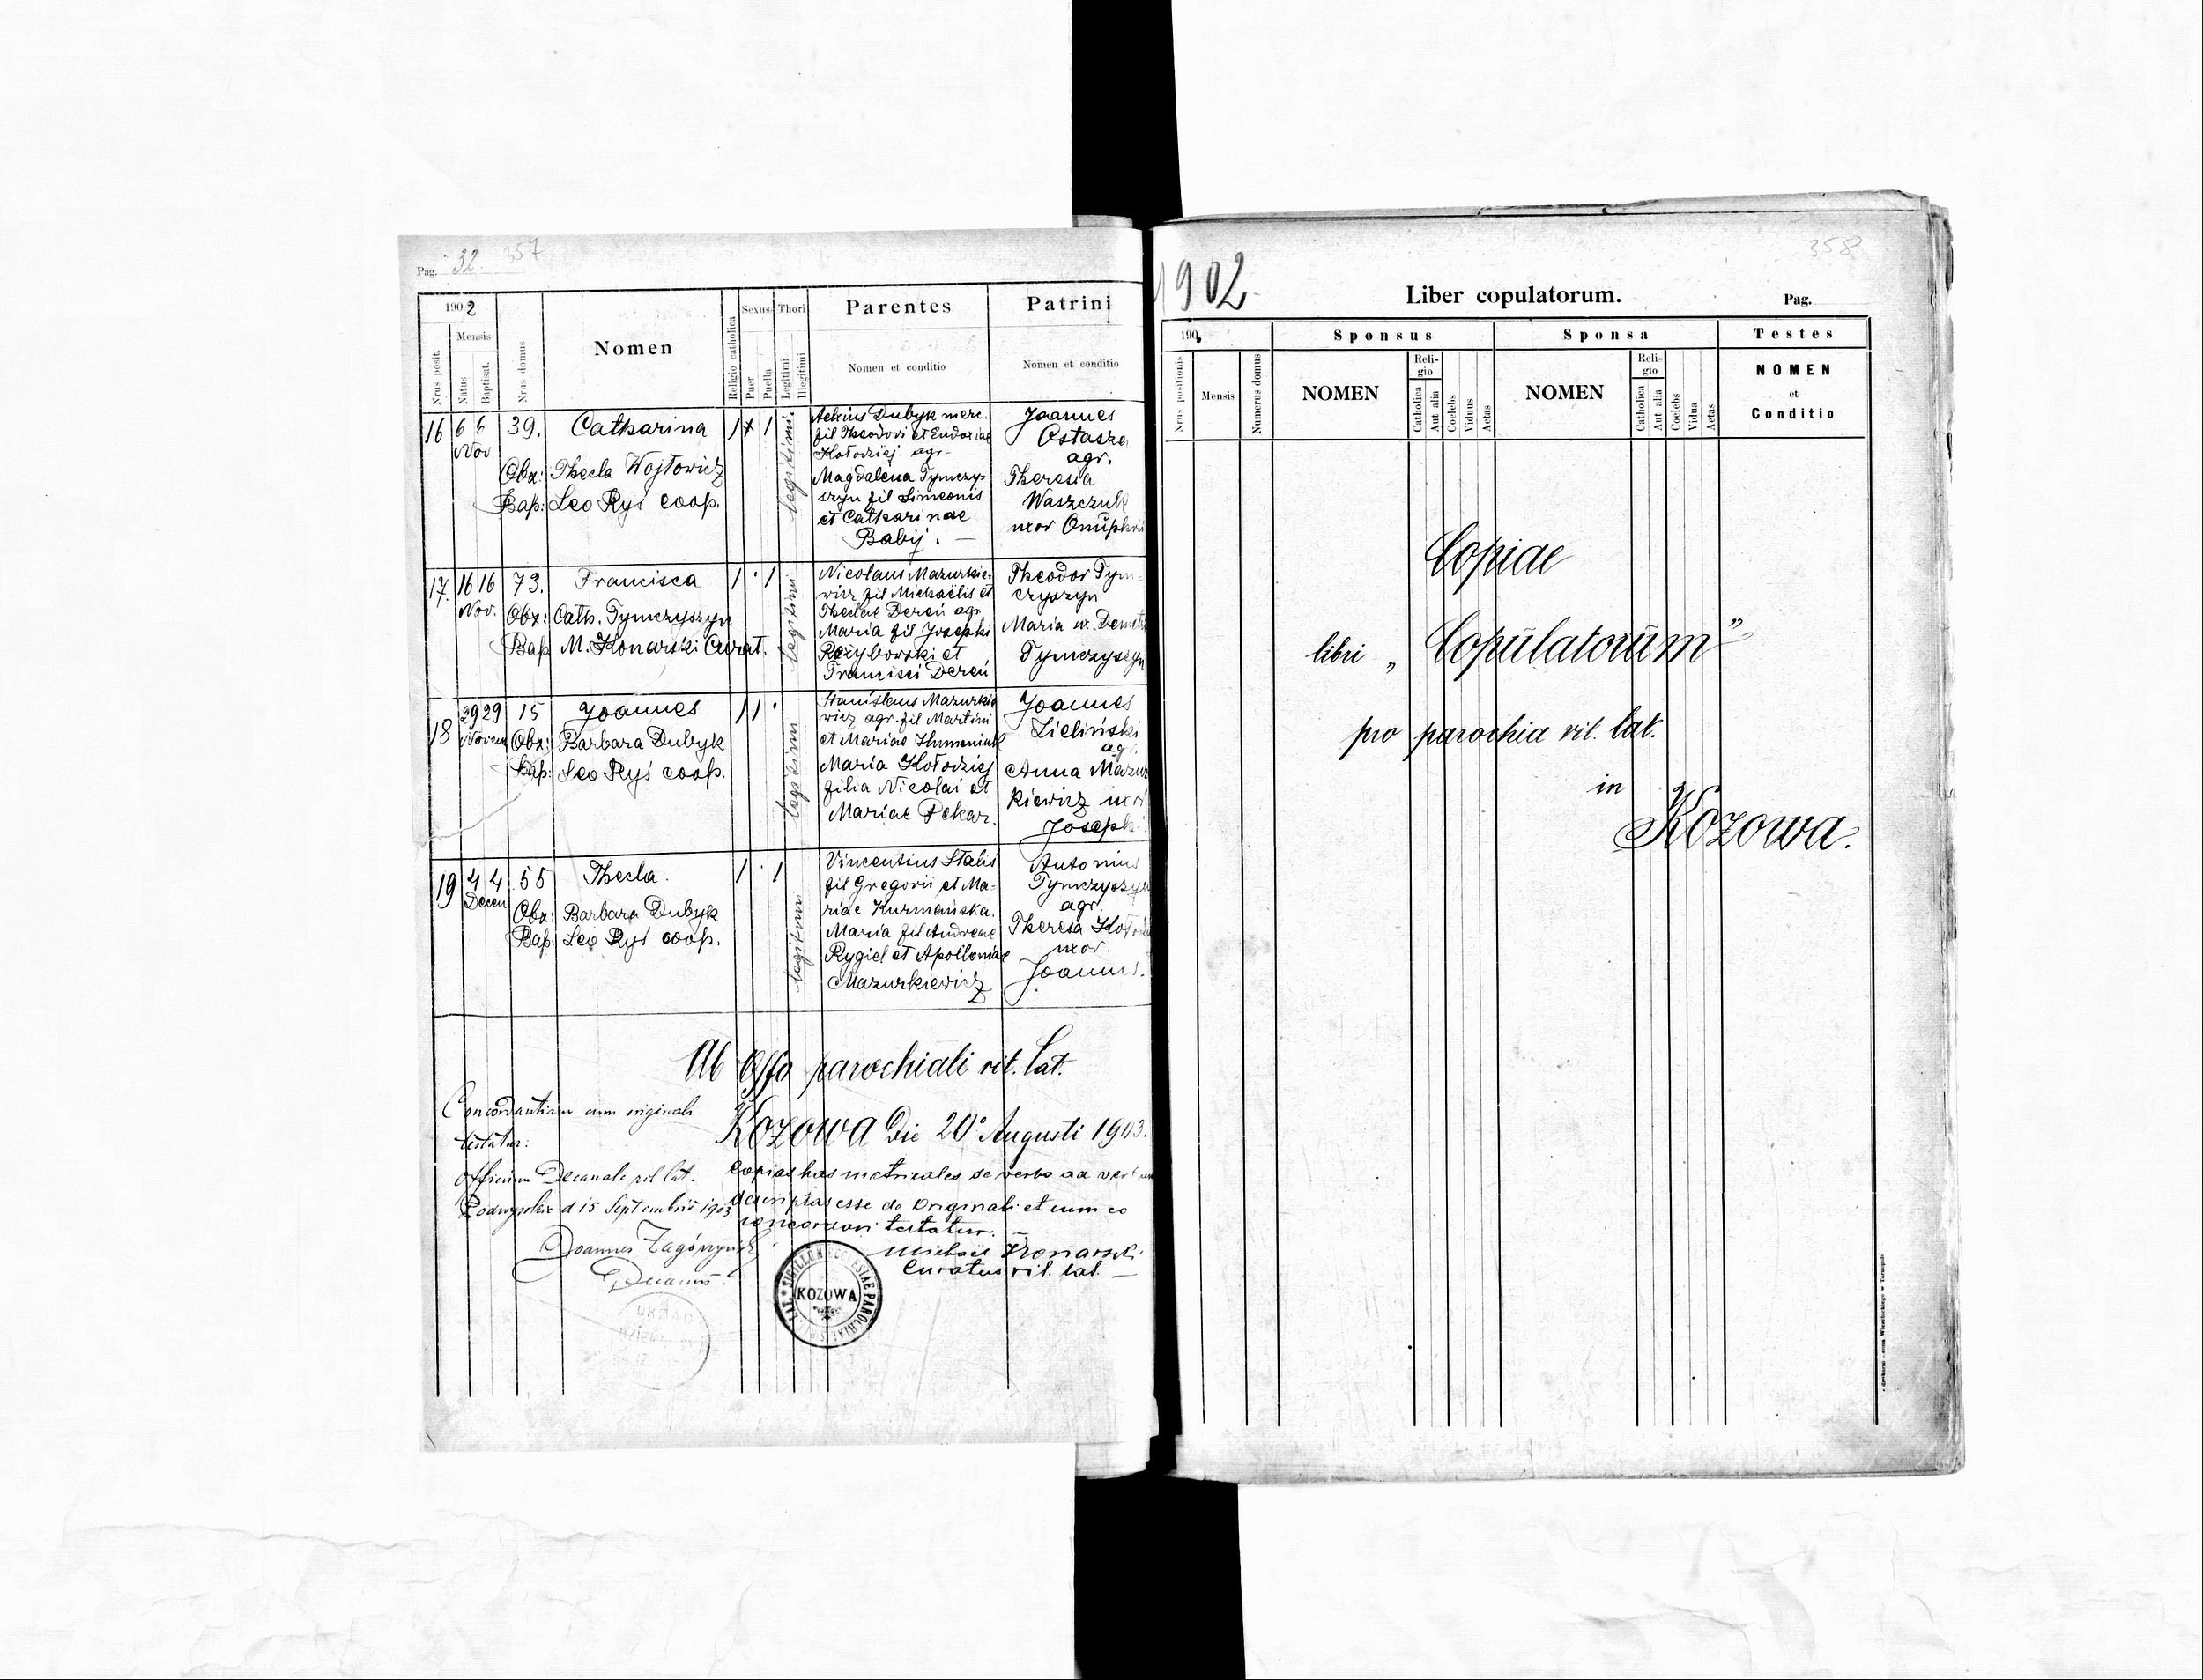 Pag. 32. 357
1902
Nrus posit.
Mensis
Natus
Baptisat.
Nrus domus
Nomen
Religio catholica
Sexus
Puer
Puella
Thori
Legitimi
Illegitimi
Parentes
Nomen et conditio
Patrini
Nomen et conditio
16 6 6 Nov. 39. Catharina 1 1 legitimi
Obx: Thecla Wojtowicz
Bap: Leo Ryś coop.
Dubyk merc.
fil Theodori et Eudoxiae
Kołodziej agr.
Magdalena Tymczy-
szyn fil Simeonis
et Catharinae
Babij. —
Joannes
Ostasze
agr.
Theresia
Waszczuk
uxor Onuphrii
17. 16 16 Nov. 73. Francisca 1 · 1 legitimi
Obx: Cath. Tymczyszyn
Bap M. Konarski Curat.
Nicolaus Mazurkie-
wicz fil Michaëlis et
Theclae Dereń agr.
Maria fil Josephi
et
Francisci Dereń
Theodor Tym-
czyszyn
Maria ux. Demetri
Tymczyszyn
18 29 29 Novem 15 Joannes 1 1 · legitimi
Obx: Barbara Dubyk
Bap: Leo Ryś coop.
Stanislaus Mazurkie
wicz agr. fil Martini
et Mariae Humeniuk
Maria Kołodziej
filia Nicolai et
Mariae Pekar.
Joannes
Zieliński
agr.
Anna Mazur
kiewicz uxor
Josephi
19 4 4 Decem 55 Thecla. 1 · 1 legitimi
Obx: Barbara Dubyk
Bap: Leo Ryś coop.
Vincentius Stalis
fil Gregorii et Ma-
riae Kurmańska.
Maria fil Andreae
Rygiel et Apolloniae
Mazurkiewicz
Antonius
Tymczyszyn
agr.
Theresa
uxor.
Joannis.
Ab Offo parochiali rit. Lat.
Kozowa Die 20° Augusti 1903.
Copias has metricales de verbo ad verbum
descriptas esse de Originali et cum eo
concordari testatur.
Michaël Konarski
Curatus rit. lat. —
Concordantiam cum originali
testatur:
Officium Decanale rit lat.
d 15 Septembris 1903
Joannes
Decanus.
KOZOWA
1902
358
Liber copulatorum.
Pag.
190
Nrus positionis
Mensis
Numerus domus
Sponsus
NOMEN
Religio
Catholica
Aut alia
Coelebs
Viduus
Aetas
Sponsa
NOMEN
Religio
Catholica
Aut alia
Coelebs
Vidua
Aetas
Testes
NOMEN
et
Conditio
Copiae
libri „ Copulatorum”
pro parochia rit. lat.
in
Kozowa.